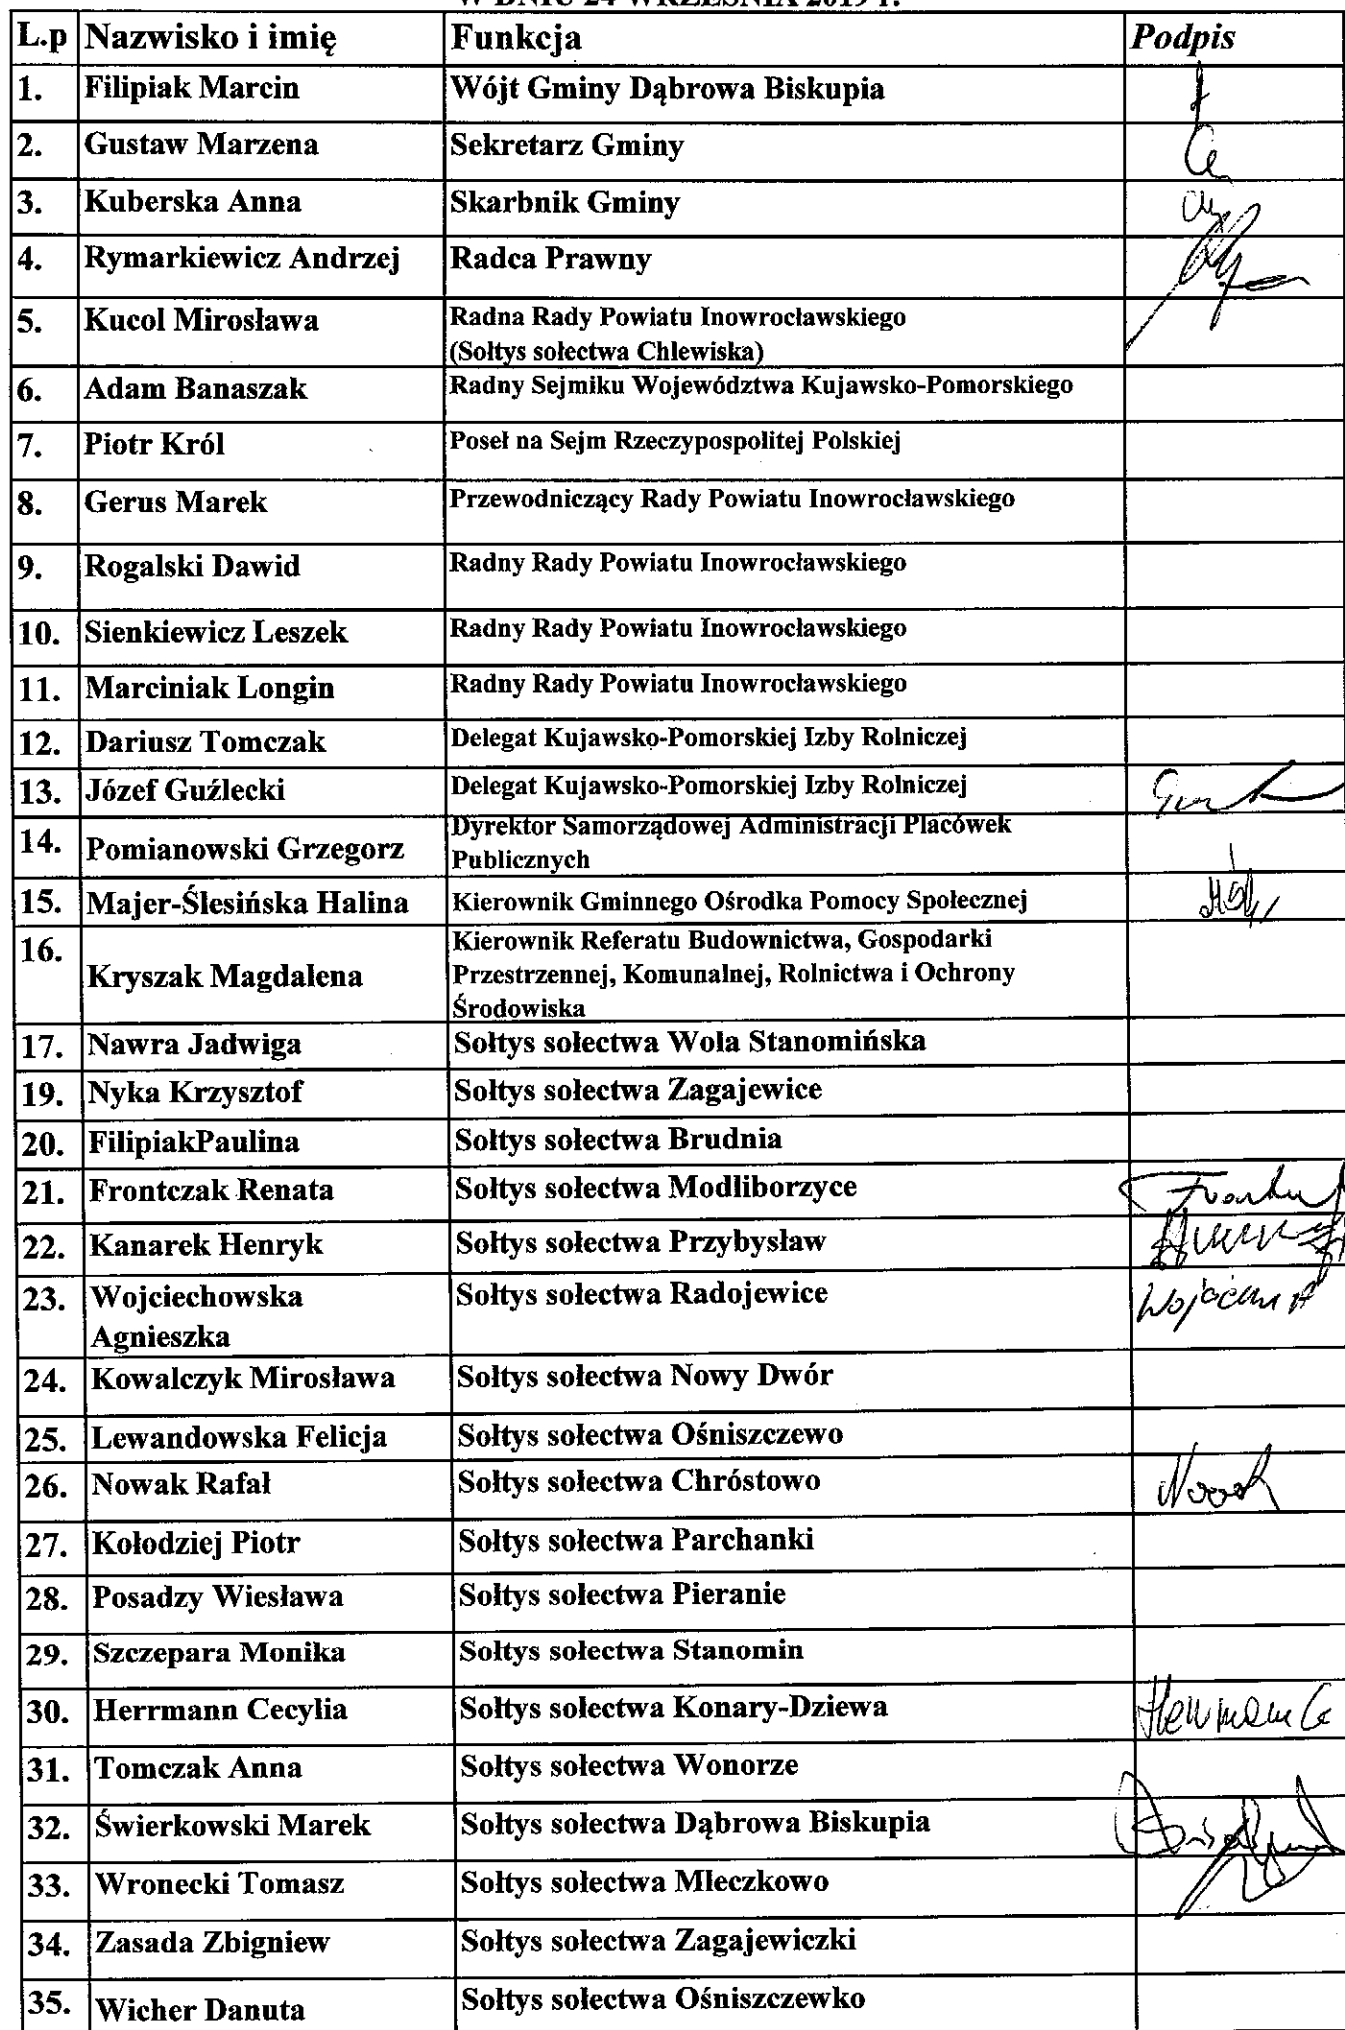 W DNIU 24 WRZEŚNIA 2019 r.
L.p Nazwisko i imię Funkcja Podpis
1. Filipiak Marcin Wójt Gminy Dąbrowa Biskupia
2. Gustaw Marzena Sekretarz Gminy
3. Kuberska Anna Skarbnik Gminy
4. Rymarkiewicz Andrzej Radca Prawny
5. Kucol Mirosława Radna Rady Powiatu Inowrocławskiego
(Sołtys sołectwa Chlewiska)
6. Adam Banaszak Radny Sejmiku Województwa Kujawsko-Pomorskiego
7. Piotr Król Poseł na Sejm Rzeczypospolitej Polskiej
8. Gerus Marek Przewodniczący Rady Powiatu Inowrocławskiego
9. Rogalski Dawid Radny Rady Powiatu Inowrocławskiego
10. Sienkiewicz Leszek Radny Rady Powiatu Inowrocławskiego
11. Marciniak Longin Radny Rady Powiatu Inowrocławskiego
12. Dariusz Tomczak Delegat Kujawsko-Pomorskiej Izby Rolniczej
13. Józef Guźlecki Delegat Kujawsko-Pomorskiej Izby Rolniczej
14. Pomianowski Grzegorz Dyrektor Samorządowej Administracji Placówek
Publicznych
15. Majer-Ślesińska Halina Kierownik Gminnego Ośrodka Pomocy Społecznej
16. Kryszak Magdalena Kierownik Referatu Budownictwa, Gospodarki
Przestrzennej, Komunalnej, Rolnictwa i Ochrony
Środowiska
17. Nawra Jadwiga Sołtys sołectwa Wola Stanomińska
19. Nyka Krzysztof Sołtys sołectwa Zagajewice
20. FilipiakPaulina Sołtys sołectwa Brudnia
21. Frontczak Renata Sołtys sołectwa Modliborzyce
22. Kanarek Henryk Sołtys sołectwa Przybysław
23. Wojciechowska Sołtys sołectwa Radojewice
Agnieszka
24. Kowalczyk Mirosława Sołtys sołectwa Nowy Dwór
25. Lewandowska Felicja Sołtys sołectwa Ośniszczewo
26. Nowak Rafał Sołtys sołectwa Chróstowo
27. Kołodziej Piotr Sołtys sołectwa Parchanki
28. Posadzy Wiesława Sołtys sołectwa Pieranie
29. Szczepara Monika Sołtys sołectwa Stanomin
30. Herrmann Cecylia Sołtys sołectwa Konary-Dziewa
31. Tomczak Anna Sołtys sołectwa Wonorze
32. Świerkowski Marek Sołtys sołectwa Dąbrowa Biskupia
33. Wronecki Tomasz Sołtys sołectwa Mleczkowo
34. Zasada Zbigniew Sołtys sołectwa Zagajewiczki
35. Wicher Danuta Sołtys sołectwa Ośniszczewko